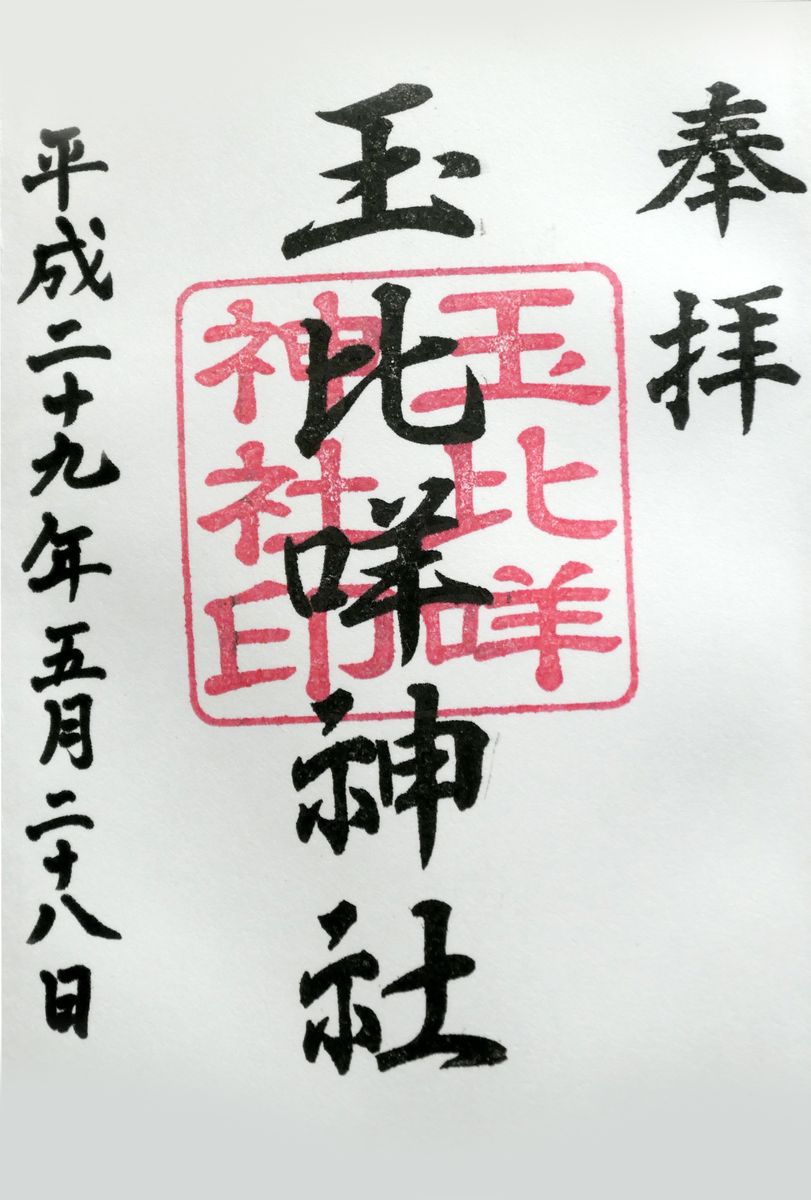 奉拝
玉比咩神社
玉比咩
神社印
平成二十九年五月二十八日